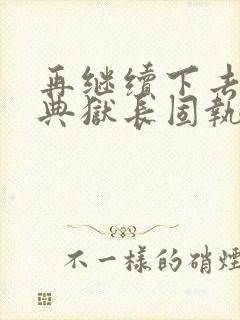 再继续下去
典獄长固執
不一樣的硝煙